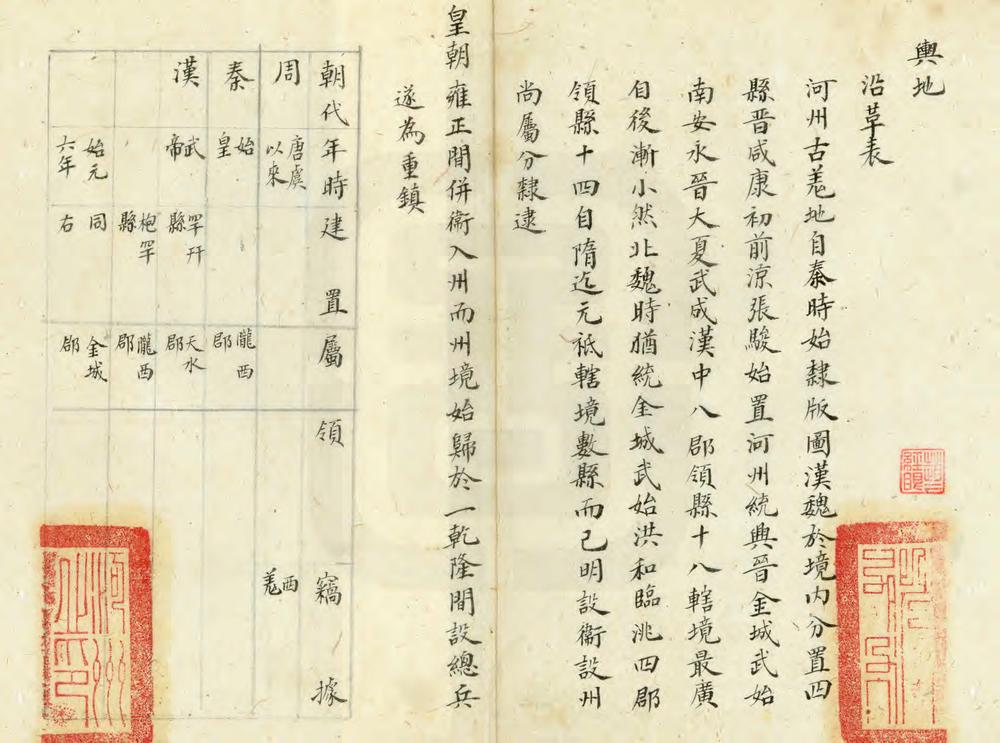 輿地
沿革表
河州古羌地自秦時始隸版圖漢魏於境內分置四
縣晋咸康初前涼張駿始置河州統興晉金城武始
南安永晉大夏武成漢中八郡領縣十八轄境最廣
自後漸小然北魏時猶統金城武始洪和臨洮四郡
領縣十四自隋迄元祇轄境數縣而已明設衞設州
尚屬分隸逮
皇朝雍正間併衞入州而州境始歸於一乾隆間設總兵
遂為重鎮
朝代 年時 建置 屬領 竊據
周 唐虞以來 西羌
秦 始皇 隴西郡
漢 武帝 罕幵縣 天水郡
枹罕縣 隴西郡
始元六年 同右 金城郡
河州之印